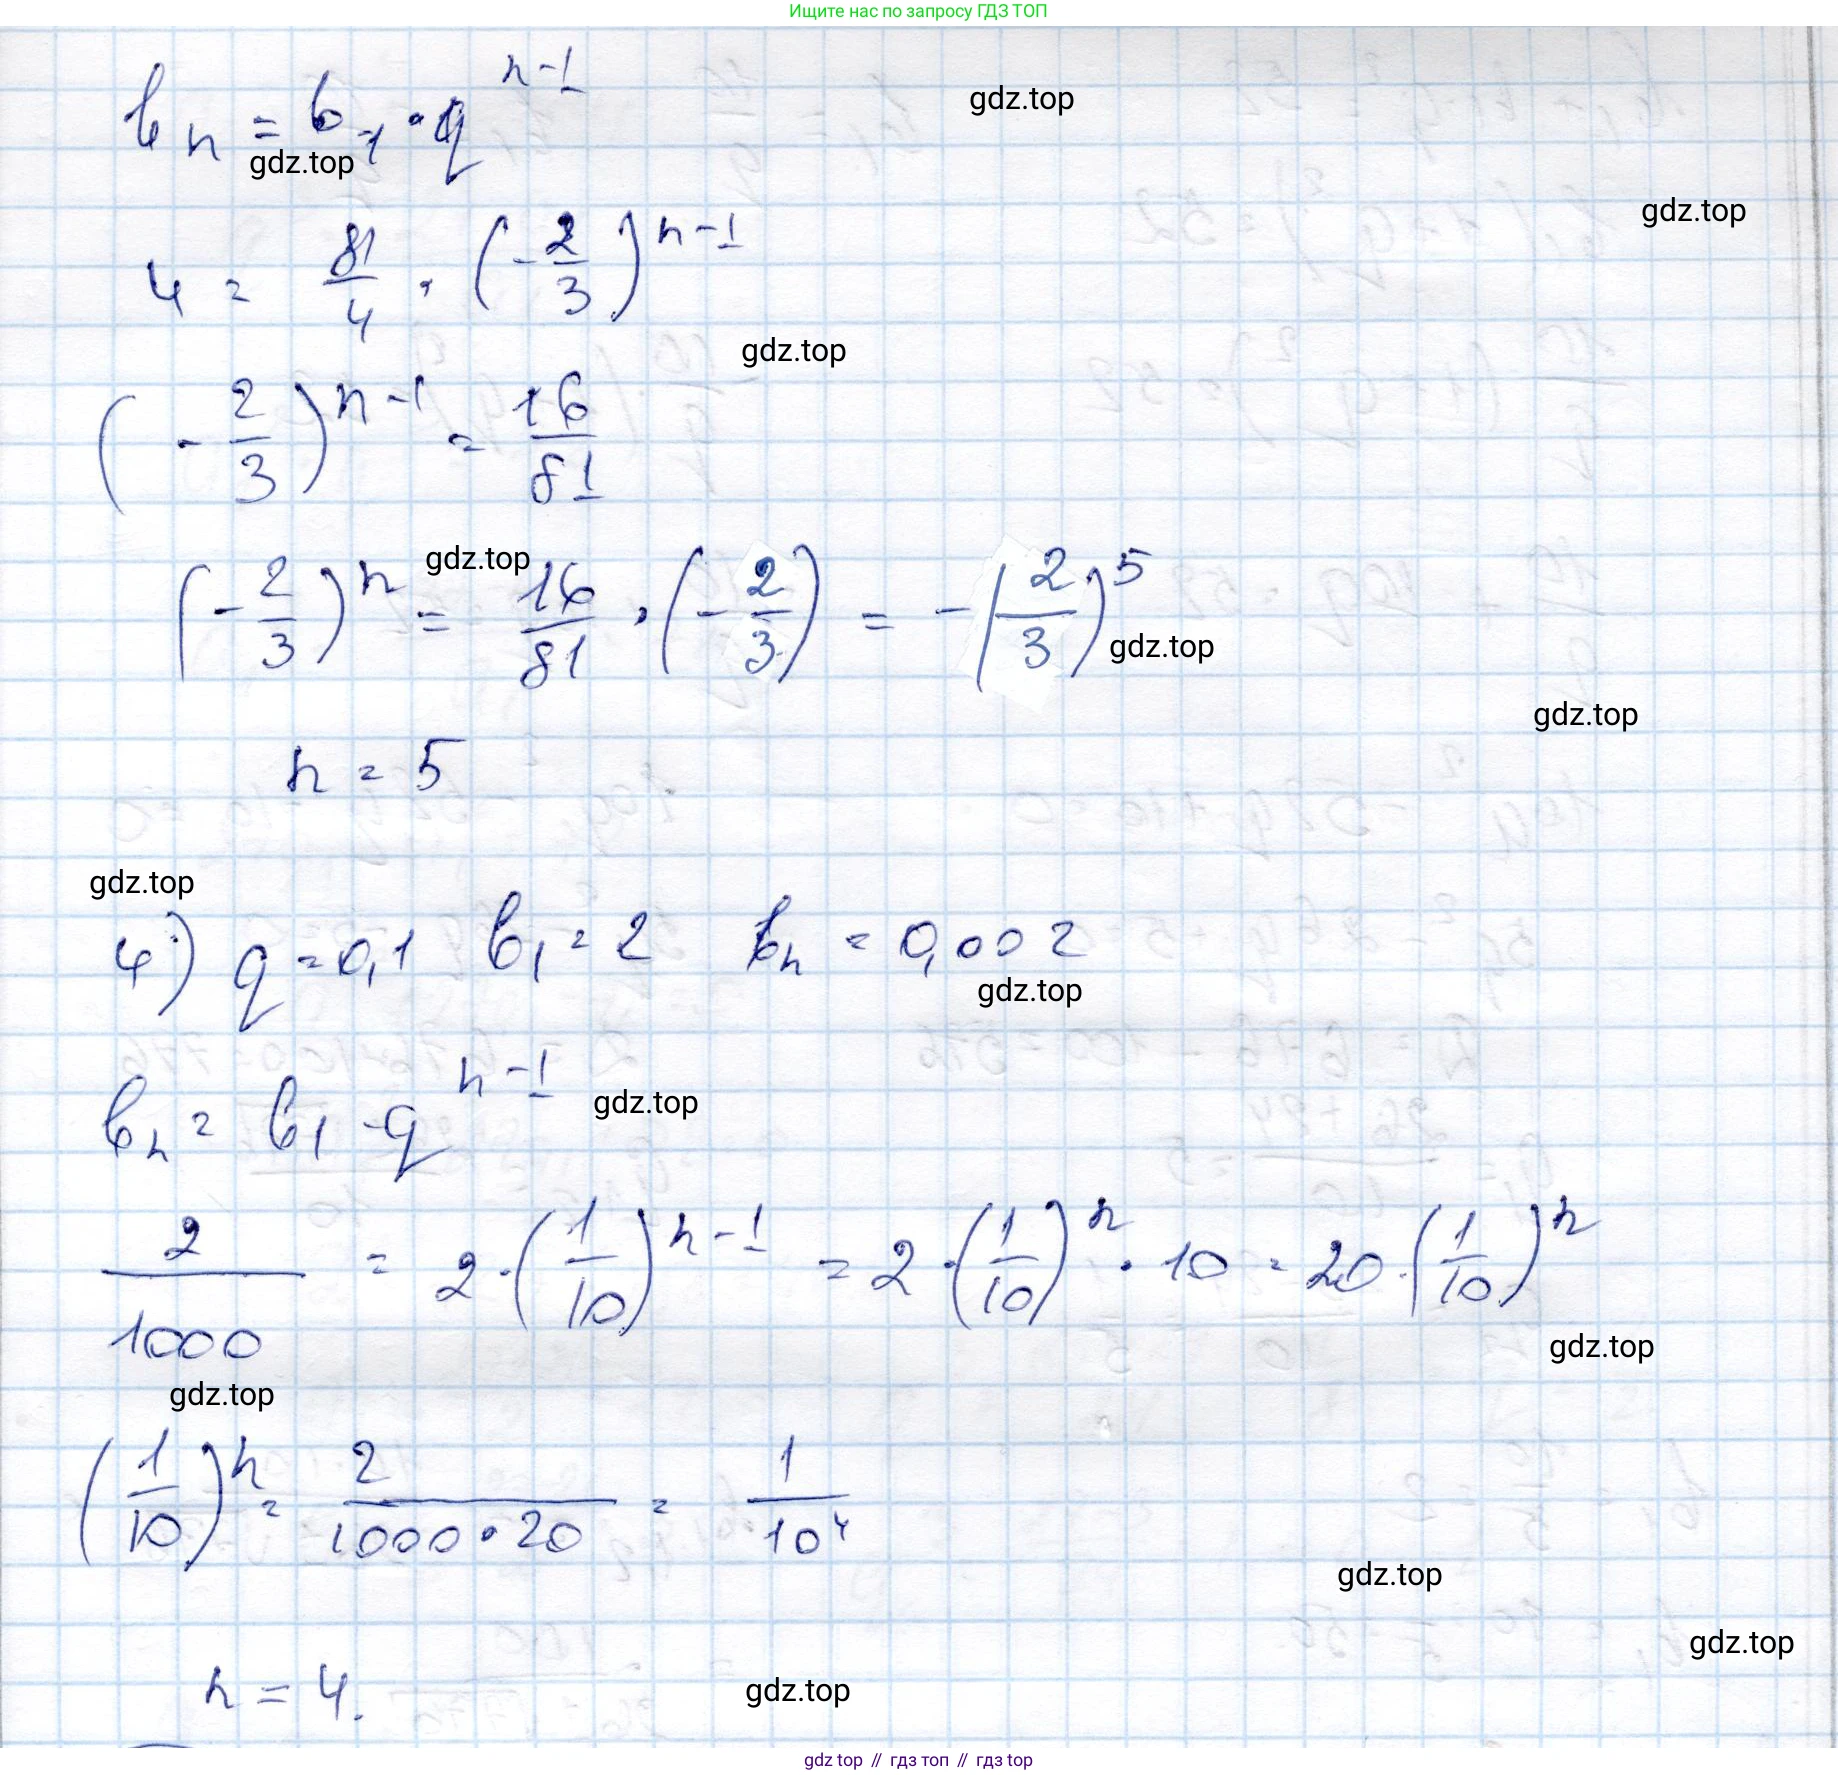 Ищите нас по запросу ГДЗ ТОП
bₙ = b₁ · q^(n-1)
gdz.top
gdz.top
gdz.top
4 = 81/4 · (-2/3)^(n-1)
gdz.top
(-2/3)^(n-1) = 16/81
gdz.top
(-2/3)^n = 16/81 · (-2/3) = -(2/3)^5
gdz.top
gdz.top
n = 5
gdz.top
4) q = 0,1 b₁ = 2 bₙ = 0,002
gdz.top
bₙ = b₁ · q^(n-1)
gdz.top
2/1000 = 2 · (1/10)^(n-1) = 2 · (1/10)^n · 10 = 20 · (1/10)^n
gdz.top
gdz.top
(1/10)^n = 2/(1000 · 20) = 1/10^4
gdz.top
gdz.top
n = 4.
gdz.top
gdz top // гдз топ // гдз top